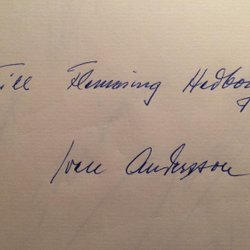 Till Flemming Hedbo
Iven Andersson